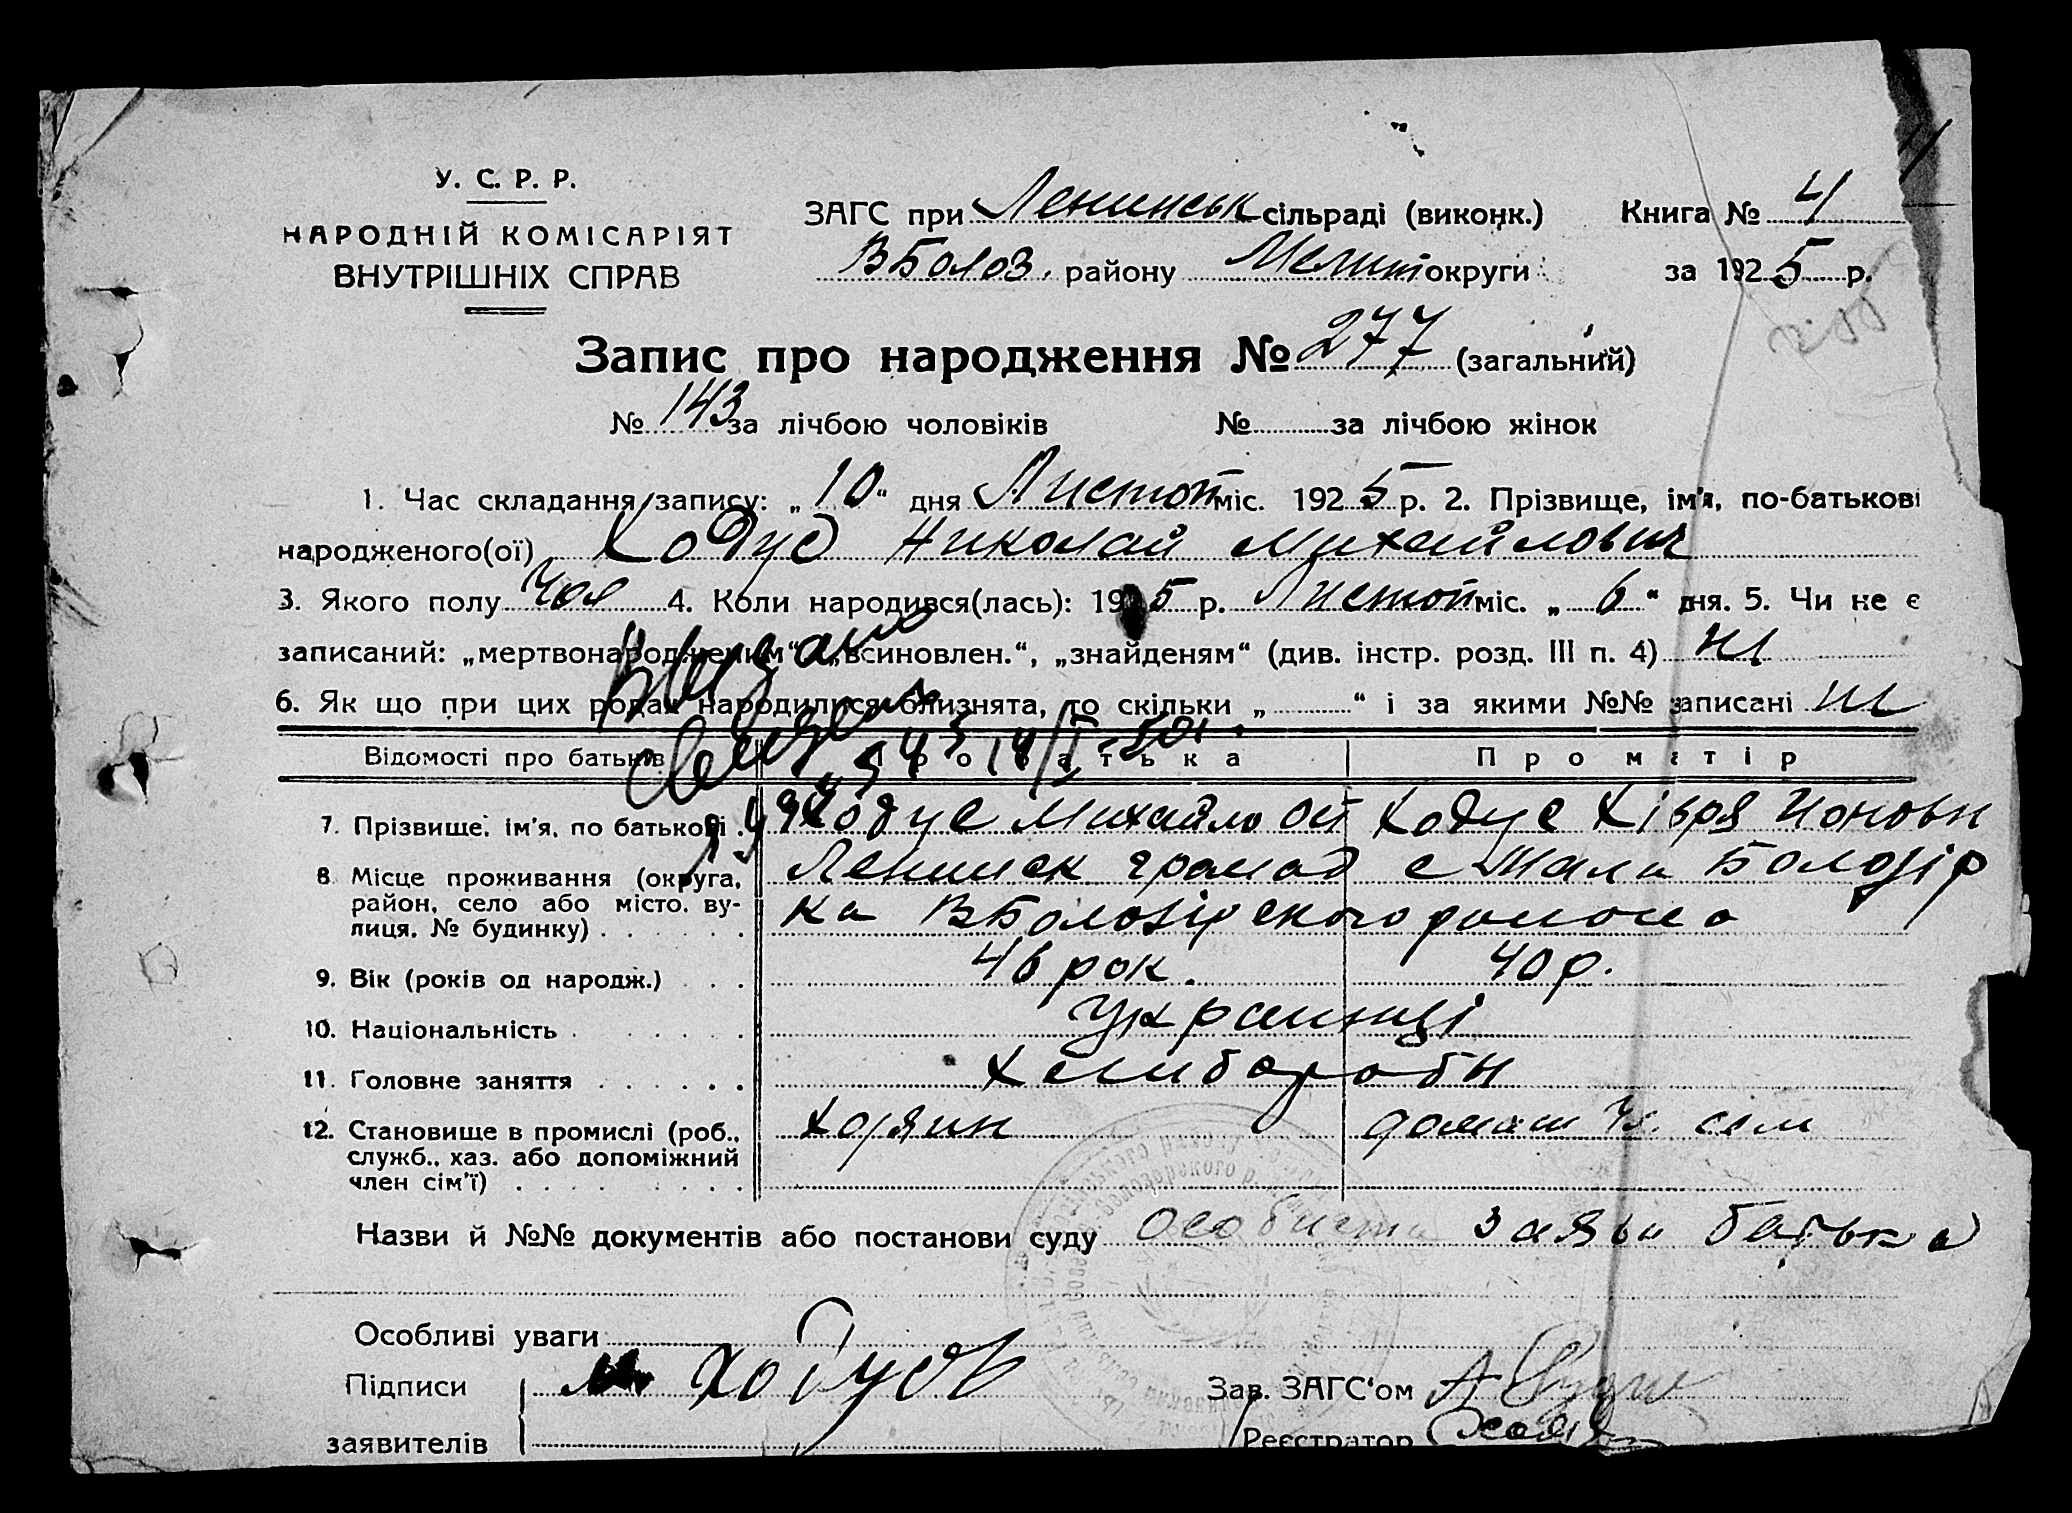 У. С. Р. Р.
НАРОДНІЙ КОМІСАРІЯТ
ВНУТРІШНІХ СПРАВ
ЗАГС при Ленинськ сільраді (виконк.) Книга № 4
ВБолоз. району Мелит округи за 1925 р.
Запис про народження № 277 (загальний)
№ 143 за лічбою чоловіків № за лічбою жінок
1. Час складання запису: „ 10 “ дня Листоп міс. 1925 р. 2. Прізвище, ім'я, по-батькові
народженого(ої) Ходус Николай Михайлович
3. Якого полу Чол 4. Коли народився(лась): 1925 р. Листоп міс. „ 6 “ дня. 5. Чи не є
записаний: „мертвонародженим“, „всиновлен.“, „знайденям“ (див. інстр. розд. III п. 4) ні
6. Як що при цих родах народилися близнята, то скільки „ “ і за якими №№ записані ні
Відомості про батьків Про батька Про матір
7. Прізвище, ім'я, по батькові Ходус Михайло Ходус Хівря
8. Місце проживання (округа, Ленинск громад с МалаБолозір
район, село або місто, ву- ка ВБолозірского району
лиця, № будинку)
9. Вік (років од народж.) 46 рок. 40 р.
10. Національність Украинці
11. Головне заняття Хлиборобы
12. Становище в промислі (роб., Хозяин домаш
служб., хаз. або допоміжний
член сім'ї)
Назви й №№ документів або постанови суду особиста заява батька
Особливі уваги
Підписи М Ходусь Зав. ЗАГС'ом
заявителів Реєстратор